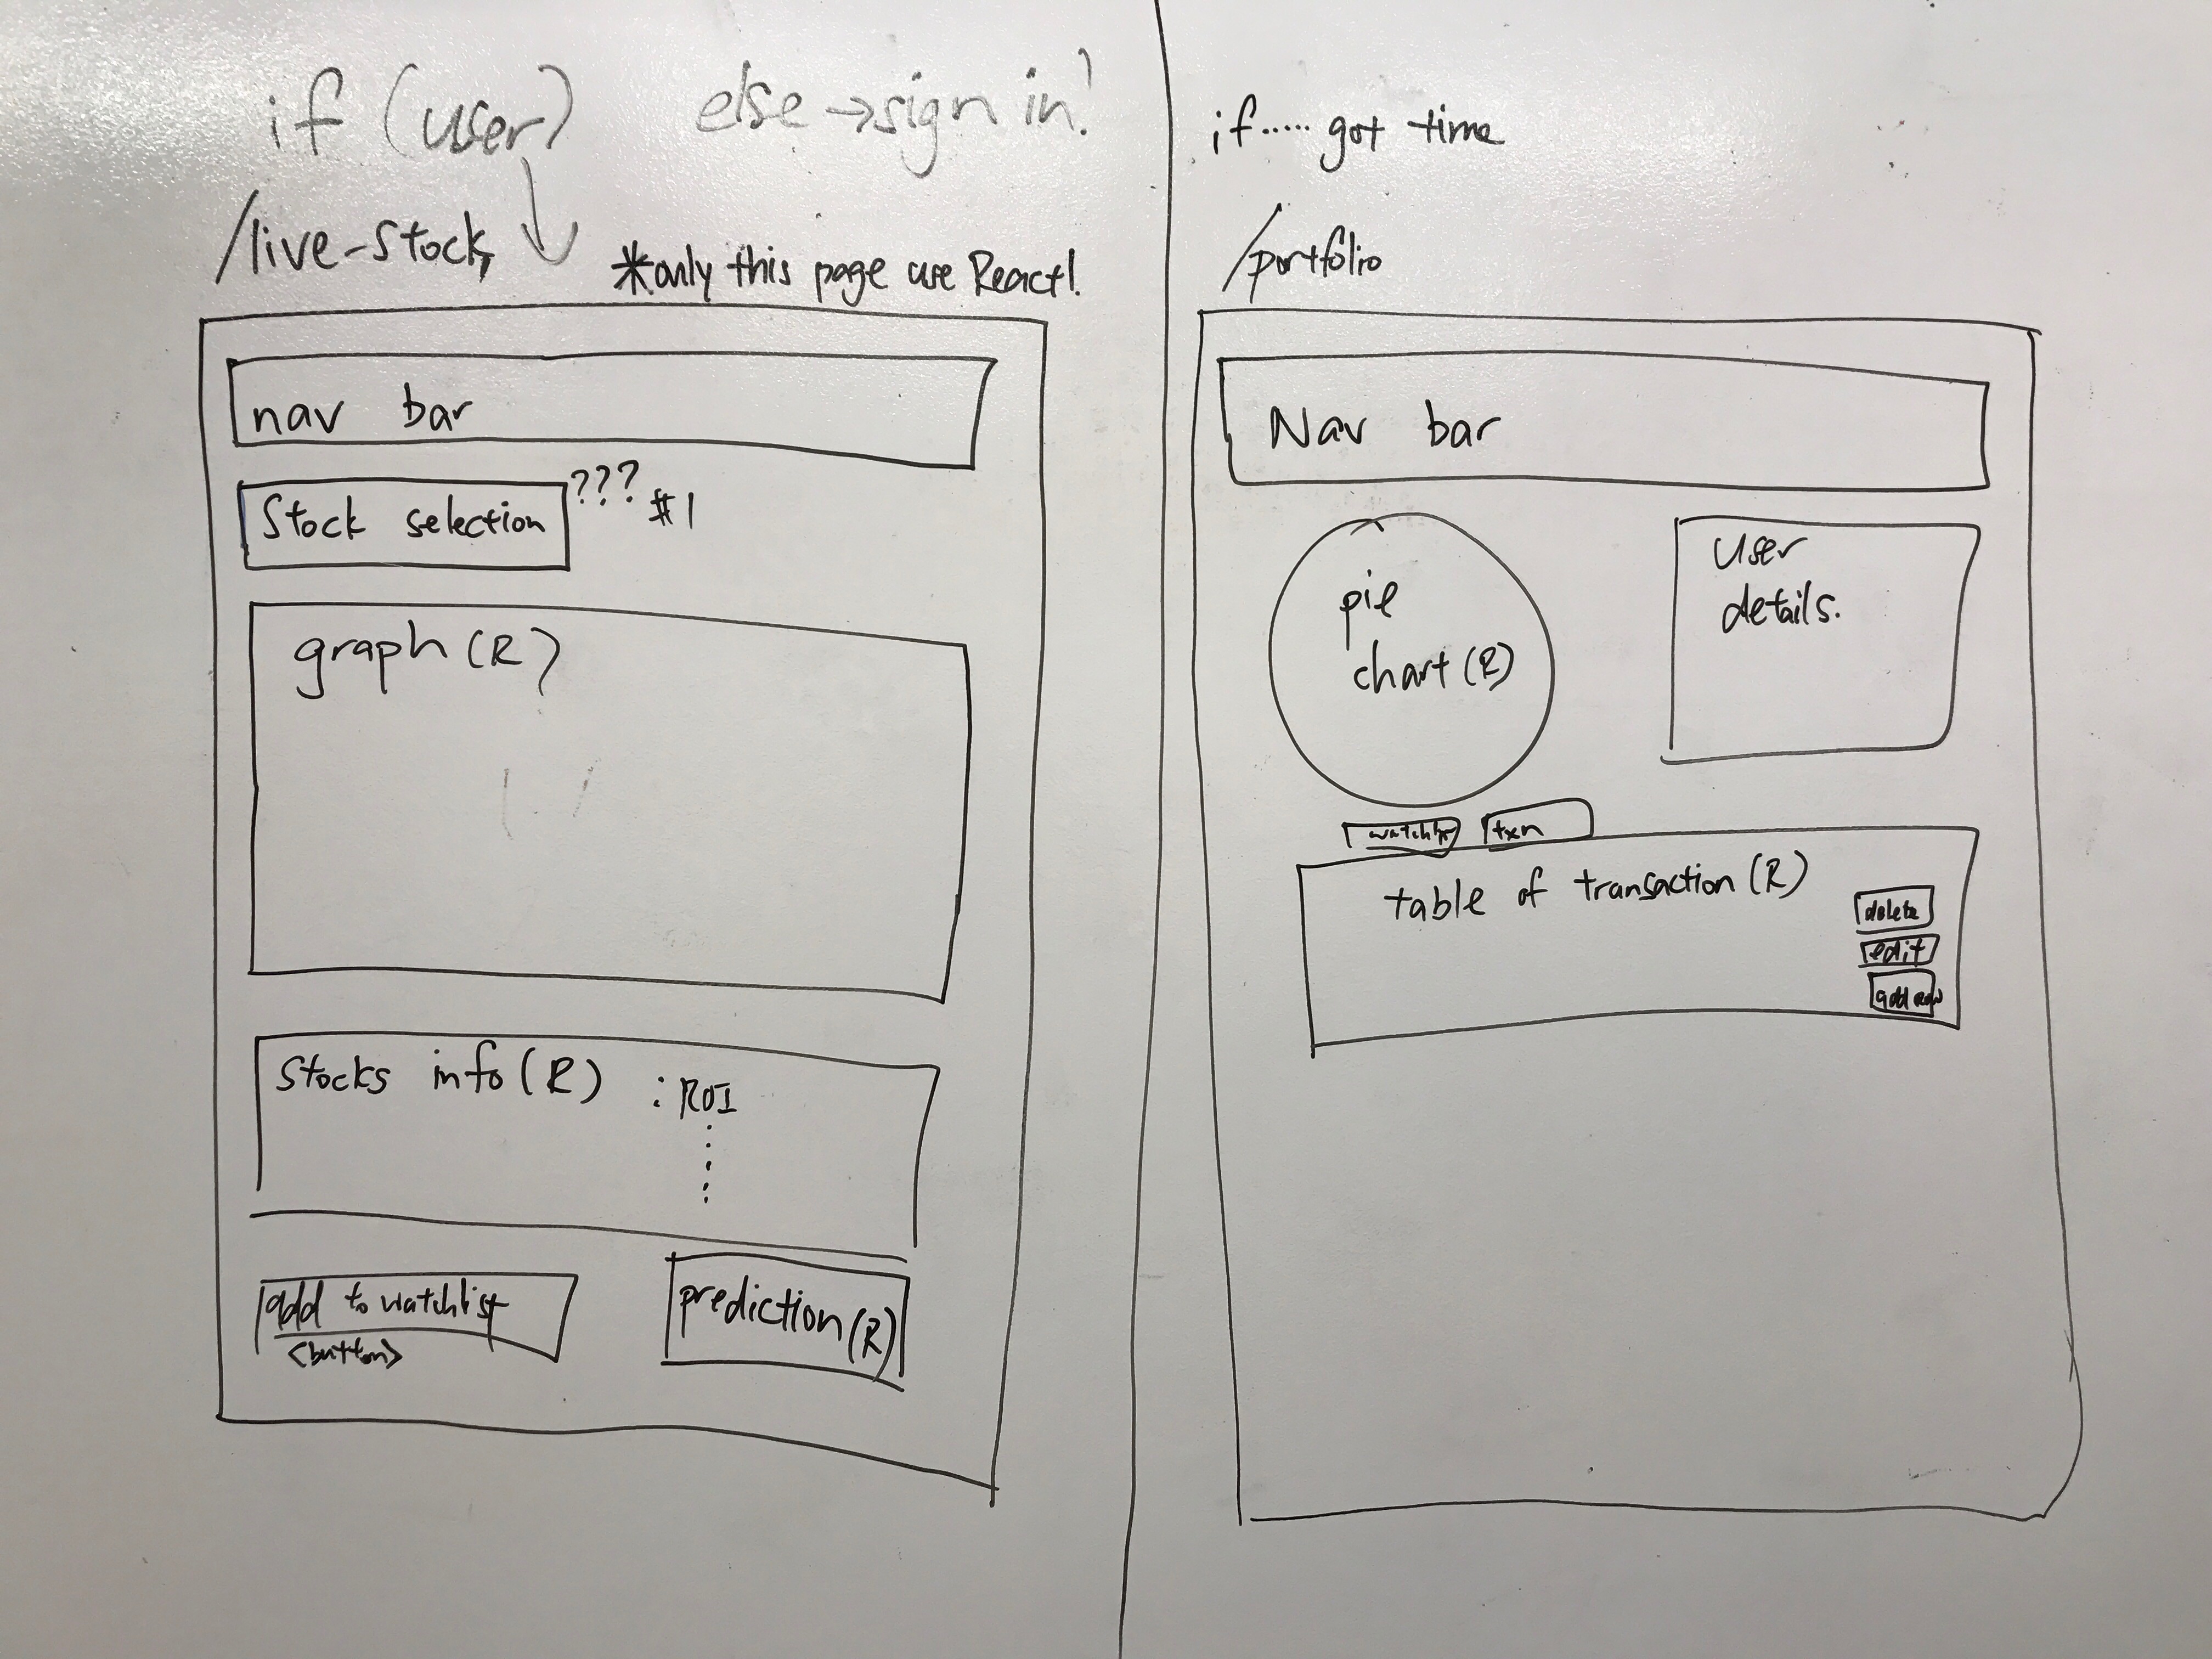 if (user) else →sign in!
/live-stock,
*only this page use React!
nav bar
Stock selection ??? #1
graph (R)
Stocks info (R) : ROI
add to watchlist
<button>
prediction (R)
if..... got time
/portfolio
Nav bar
pie
chart (R)
User
details.
watchlist txn
table of transaction (R)
delete
edit
add row